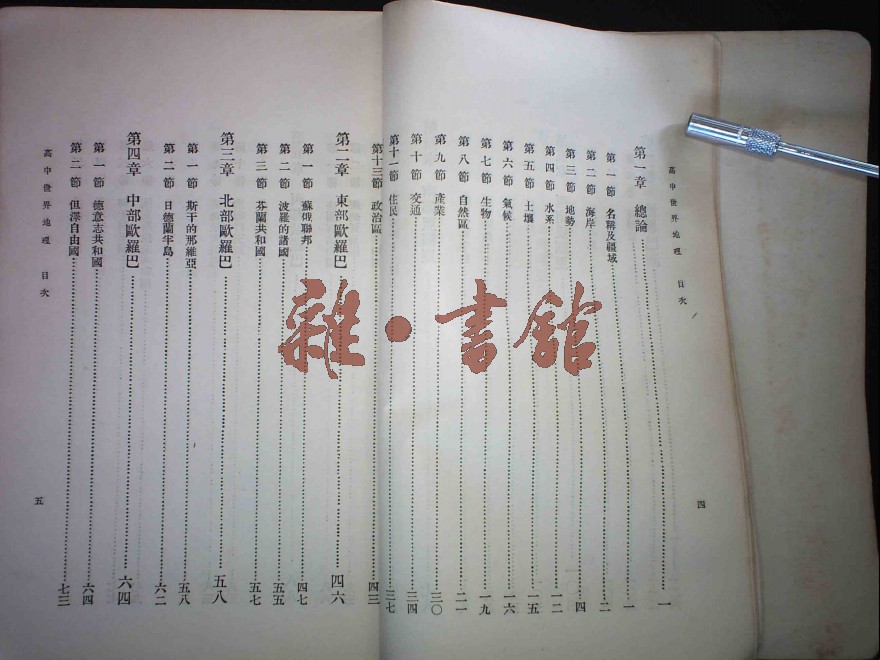 高中世界地理 目次
第一章 總論 一
第一節 名稱及疆域 一
第二節 海岸 二
第三節 地勢 四
第四節 水系 一二
第五節 土壤 一五
第六節 氣候 一六
第七節 生物 一九
第八節 自然區 二一
第九節 產業 三〇
第十節 交通 三四
第十一節 住民 三七
第十三節 政治區 四三
四
第二章 東部歐羅巴 四六
第一節 蘇俄聯邦 四七
第二節 波羅的諸國 五五
第三節 芬蘭共和國 五七
第三章 北部歐羅巴 五八
第一節 斯干的那維亞 五八
第二節 日德蘭半島 六二
第四章 中部歐羅巴 六四
第一節 德意志共和國 六四
第二節 但澤自由國 七三
高中世界地理 目次
五
雜·書館